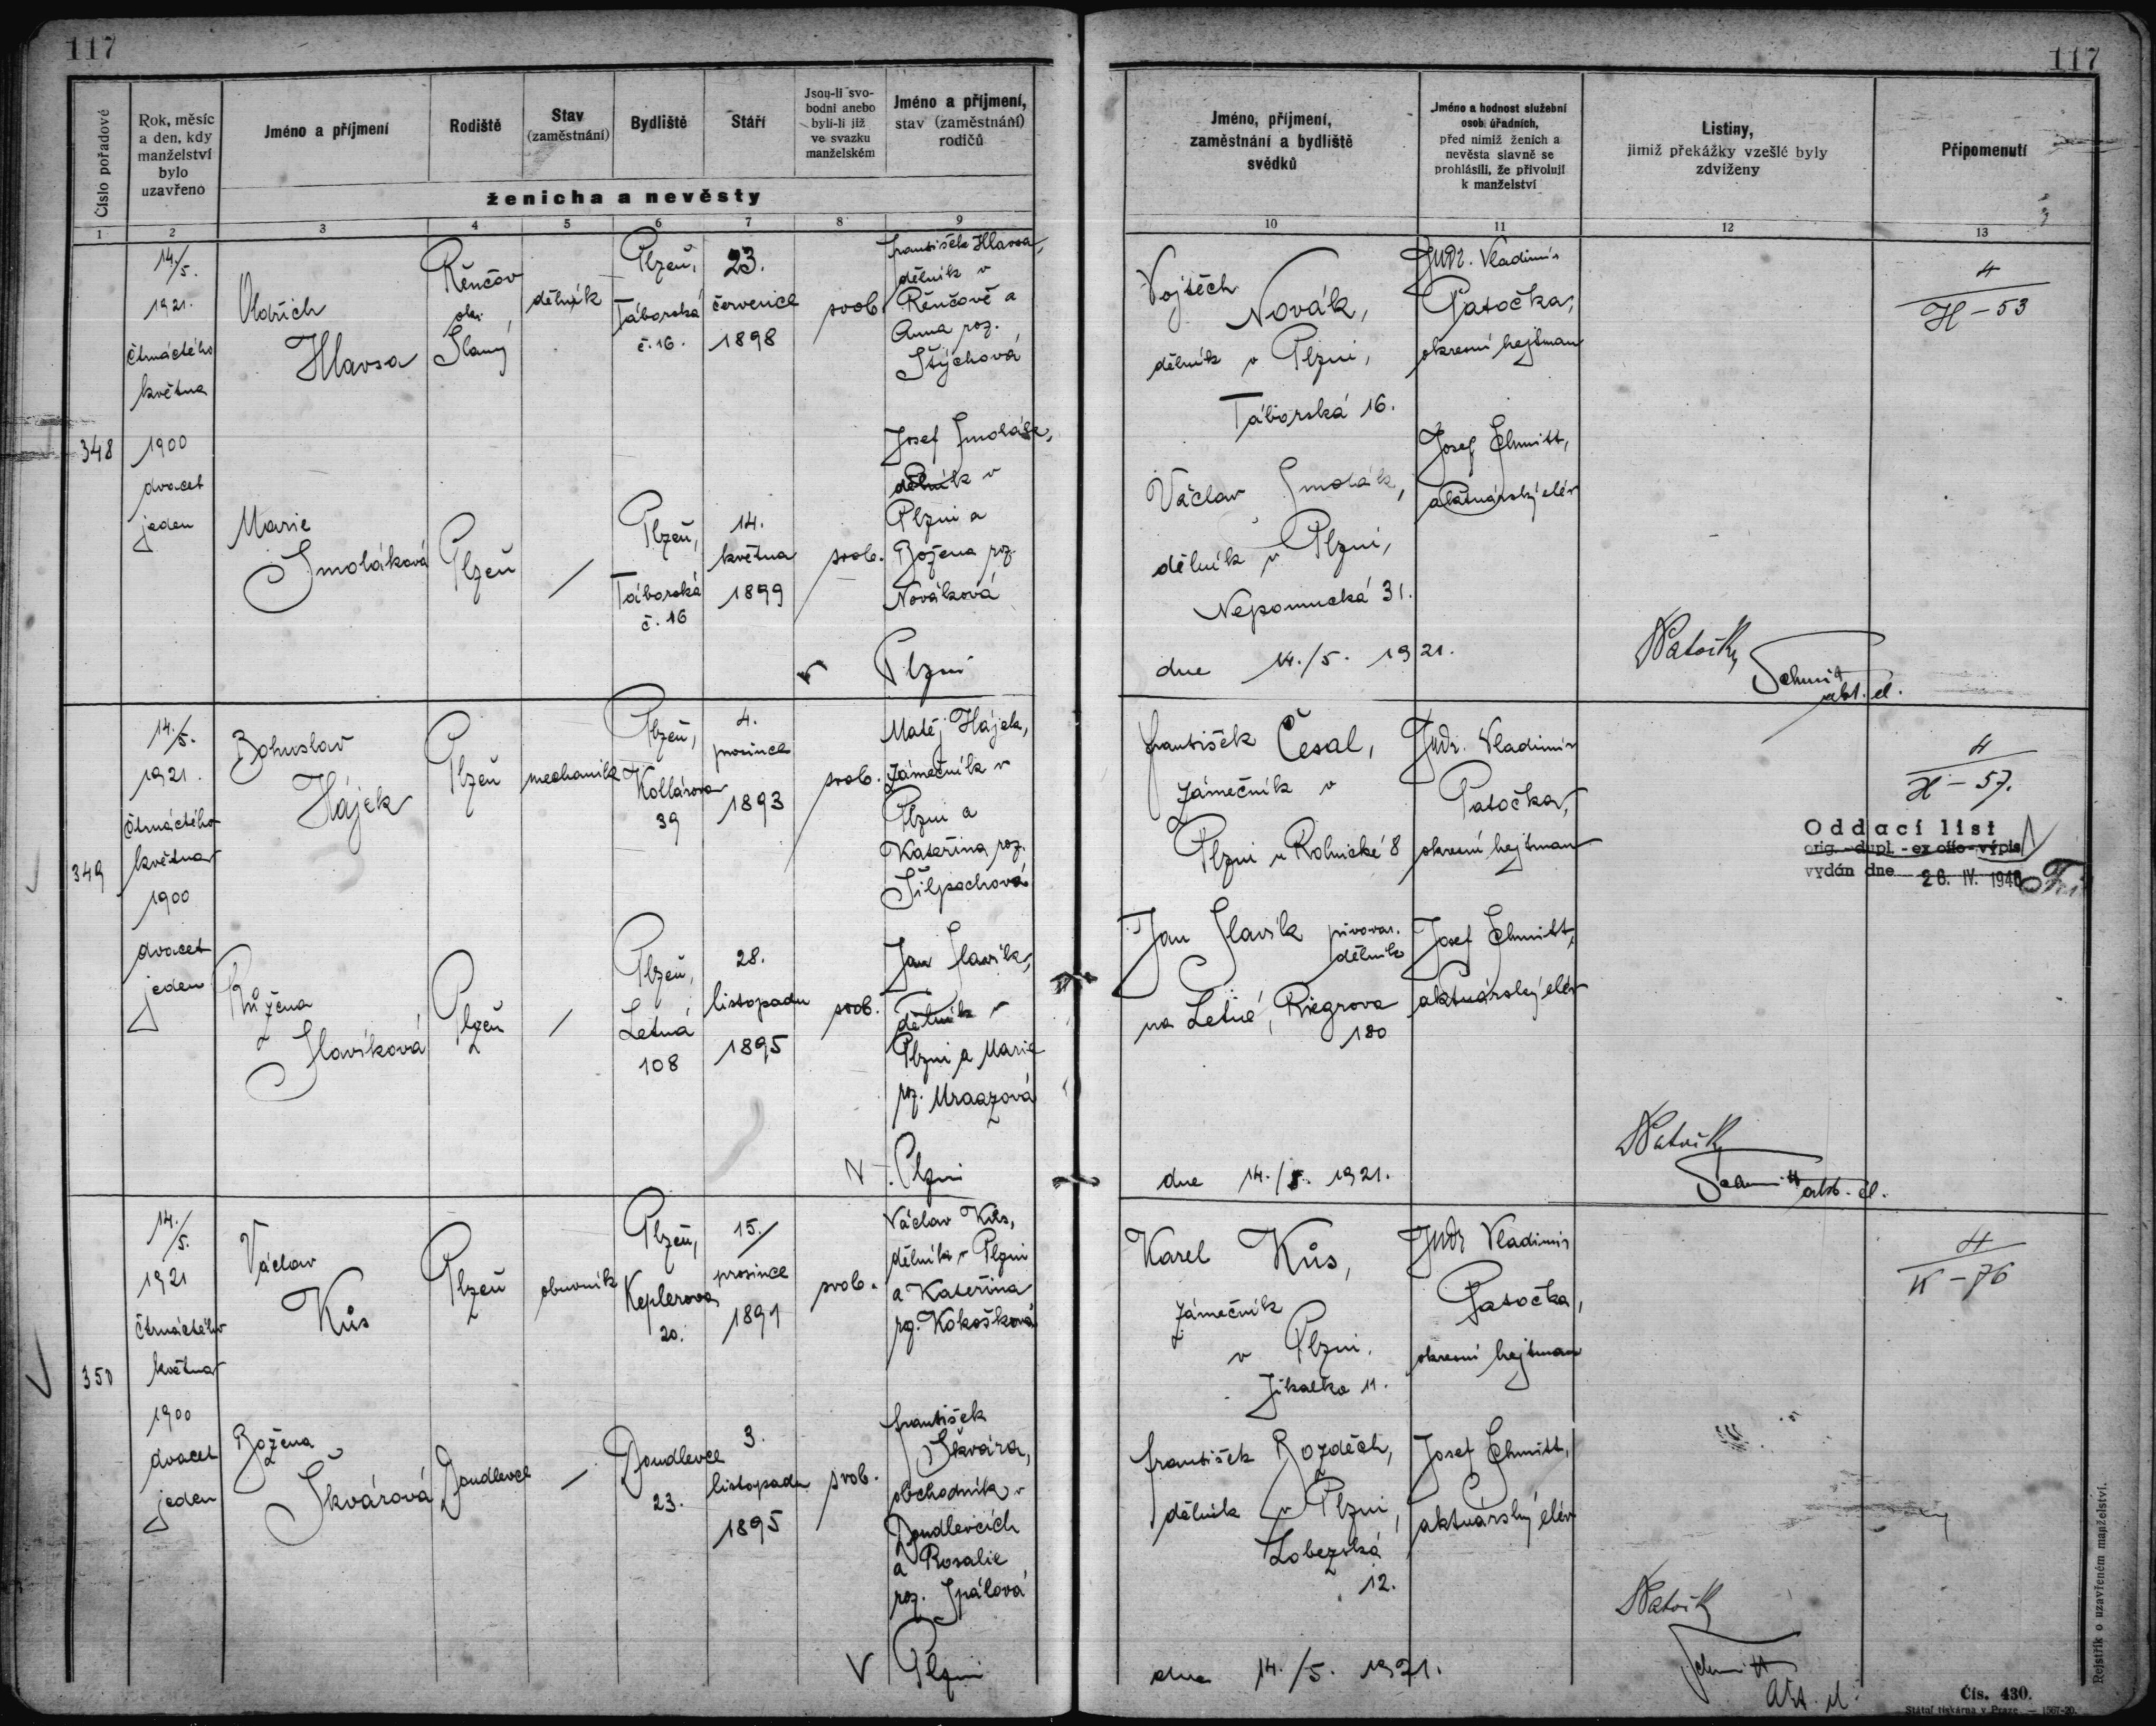 117
117
Číslo pořadové
Rok, měsíc
a den, kdy
manželství
bylo
uzavřeno
Jméno a příjmení
Rodiště
Stav
(zaměstnání)
Bydliště
Stáří
Jsou-li svo-
bodni anebo
byli-li již
ve svazku
manželském
Jméno a příjmení,
stav (zaměstnání)
rodičů
ženicha a nevěsty
Jméno, příjmení,
zaměstnání a bydliště
svědků
Jméno a hodnost služební
osob úřadních,
před nimiž ženich a
nevěsta slavně se
prohlásili, že přivolují
k manželství
Listiny,
jimiž překážky vzešlé byly
zdviženy
Připomenutí
1 2 3 4 5 6 7 8 9 10 11 12 13
348
14./5.
1921.
čtrnáctého
května
1900
dvacet
jeden
Oldřich
Hlavsa
Řenčov
okr.
Slaný
dělník
Plzeň,
Táborská
č. 16.
23.
července
1898
svob.
František Hlavsa,
dělník v
Řenčově a
Anna roz.
Štýchová
Marie
Smoláková
Plzeň
/
Plzeň,
Táborská
č. 16
14.
května
1899
svob.
Josef Smolák,
dělník v
Plzni a
Božena roz.
Nováková
v Plzni
Vojtěch
Novák,
dělník v Plzni,
Táborská 16.
Václav Smolák,
dělník v Plzni,
Nepomucká 31.
dne 14./5. 1921.
JUDr. Vladimír
Patočka,
okresní hejtman
Josef Schmitt,
aktuárský elév
Patočka
Schmitt
akt. el.
4
H - 53
349
14./5.
1921.
čtrnáctého
května
1900
dvacet
jeden
Bohuslav
Hájek
Plzeň
mechanik
Plzeň,
Kollárova
39
4.
prosince
1893
svob.
Matěj Hájek,
zámečník v
Plzni a
Kateřina roz.
Šilpachová
Růžena
Slavíková
Plzeň
/
Plzeň,
Letná
108
28.
listopadu
1895
svob.
Jan Slavík,
dělník v
Plzni a Marie
roz. Mraazová
V Plzni
František Česal,
zámečník v
Plzni v Rolnické 8
Jan Slavík pivovar.
dělník
na Letné, Riegrova
180
dne 14./5. 1921.
JUDr. Vladimír
Patočka,
okresní hejtman
Josef Schmitt,
aktuárský elév
Patočka
Schmitt akt. el.
4
H - 57.
Oddací list
orig. - dupl. - ex offo - výpis
vydán dne 26. IV. 1940
350
14./5.
1921
čtrnáctého
května
1900
dvacet
jeden
Václav
Kůs
Plzeň
obuvník
Plzeň,
Keplerova
20.
15./
prosince
1891
svob.
Václav Kůs,
dělník v Plzni
a Kateřina
roz. Kokošková
Božena
Škvárová
Doudlevce
/
Doudlevce
23.
3.
listopadu
1895
svob.
František
Škvára,
obchodník v
Doudlevcích
a Rosalie
roz. Špálová
V Plzni
Karel Kůs,
zámečník
v Plzni,
Jikalka 11.
František Rozděch,
dělník v Plzni,
Lobezská
12.
dne 14./5. 1921.
JUDr Vladimír
Patočka,
okresní hejtman
Josef Schmitt,
aktuárský elév
Patočka
Schmitt
akt. el.
4
K - 76
Rejstřík o uzavřeném manželství.
Čís. 430.
Státní tiskárna v Praze. — 1567-20.